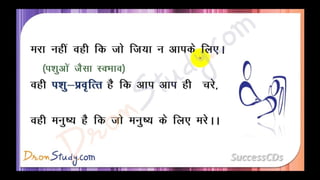 मरा नहीं वही कि जो जिया न आपके लिए।
(पशुओं जैसा स्वभाव)
वही पशु–प्रवृत्ति है कि आप आप ही चरे,
वही मनुष्य है कि जो मनुष्य के लिए मरे।।
DronStudy.com
DronStudy.com
SuccessCDs